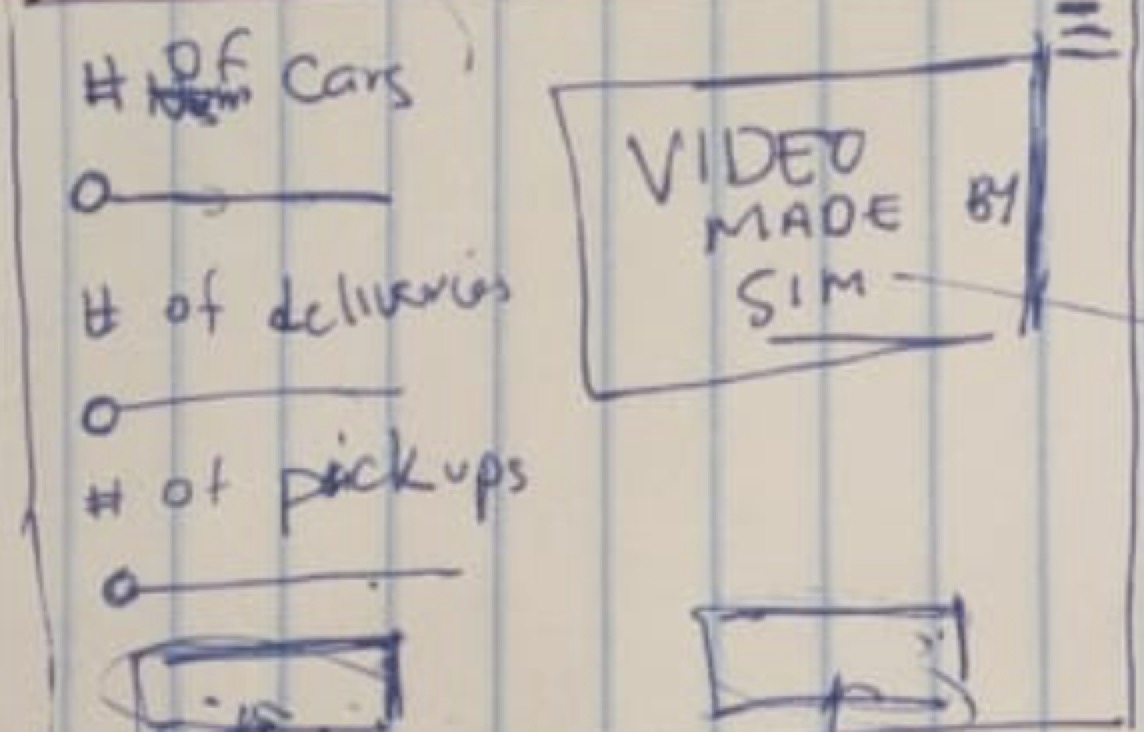 # of cars
# of deliveries
# of pickups
VIDEO
MADE BY
SIM